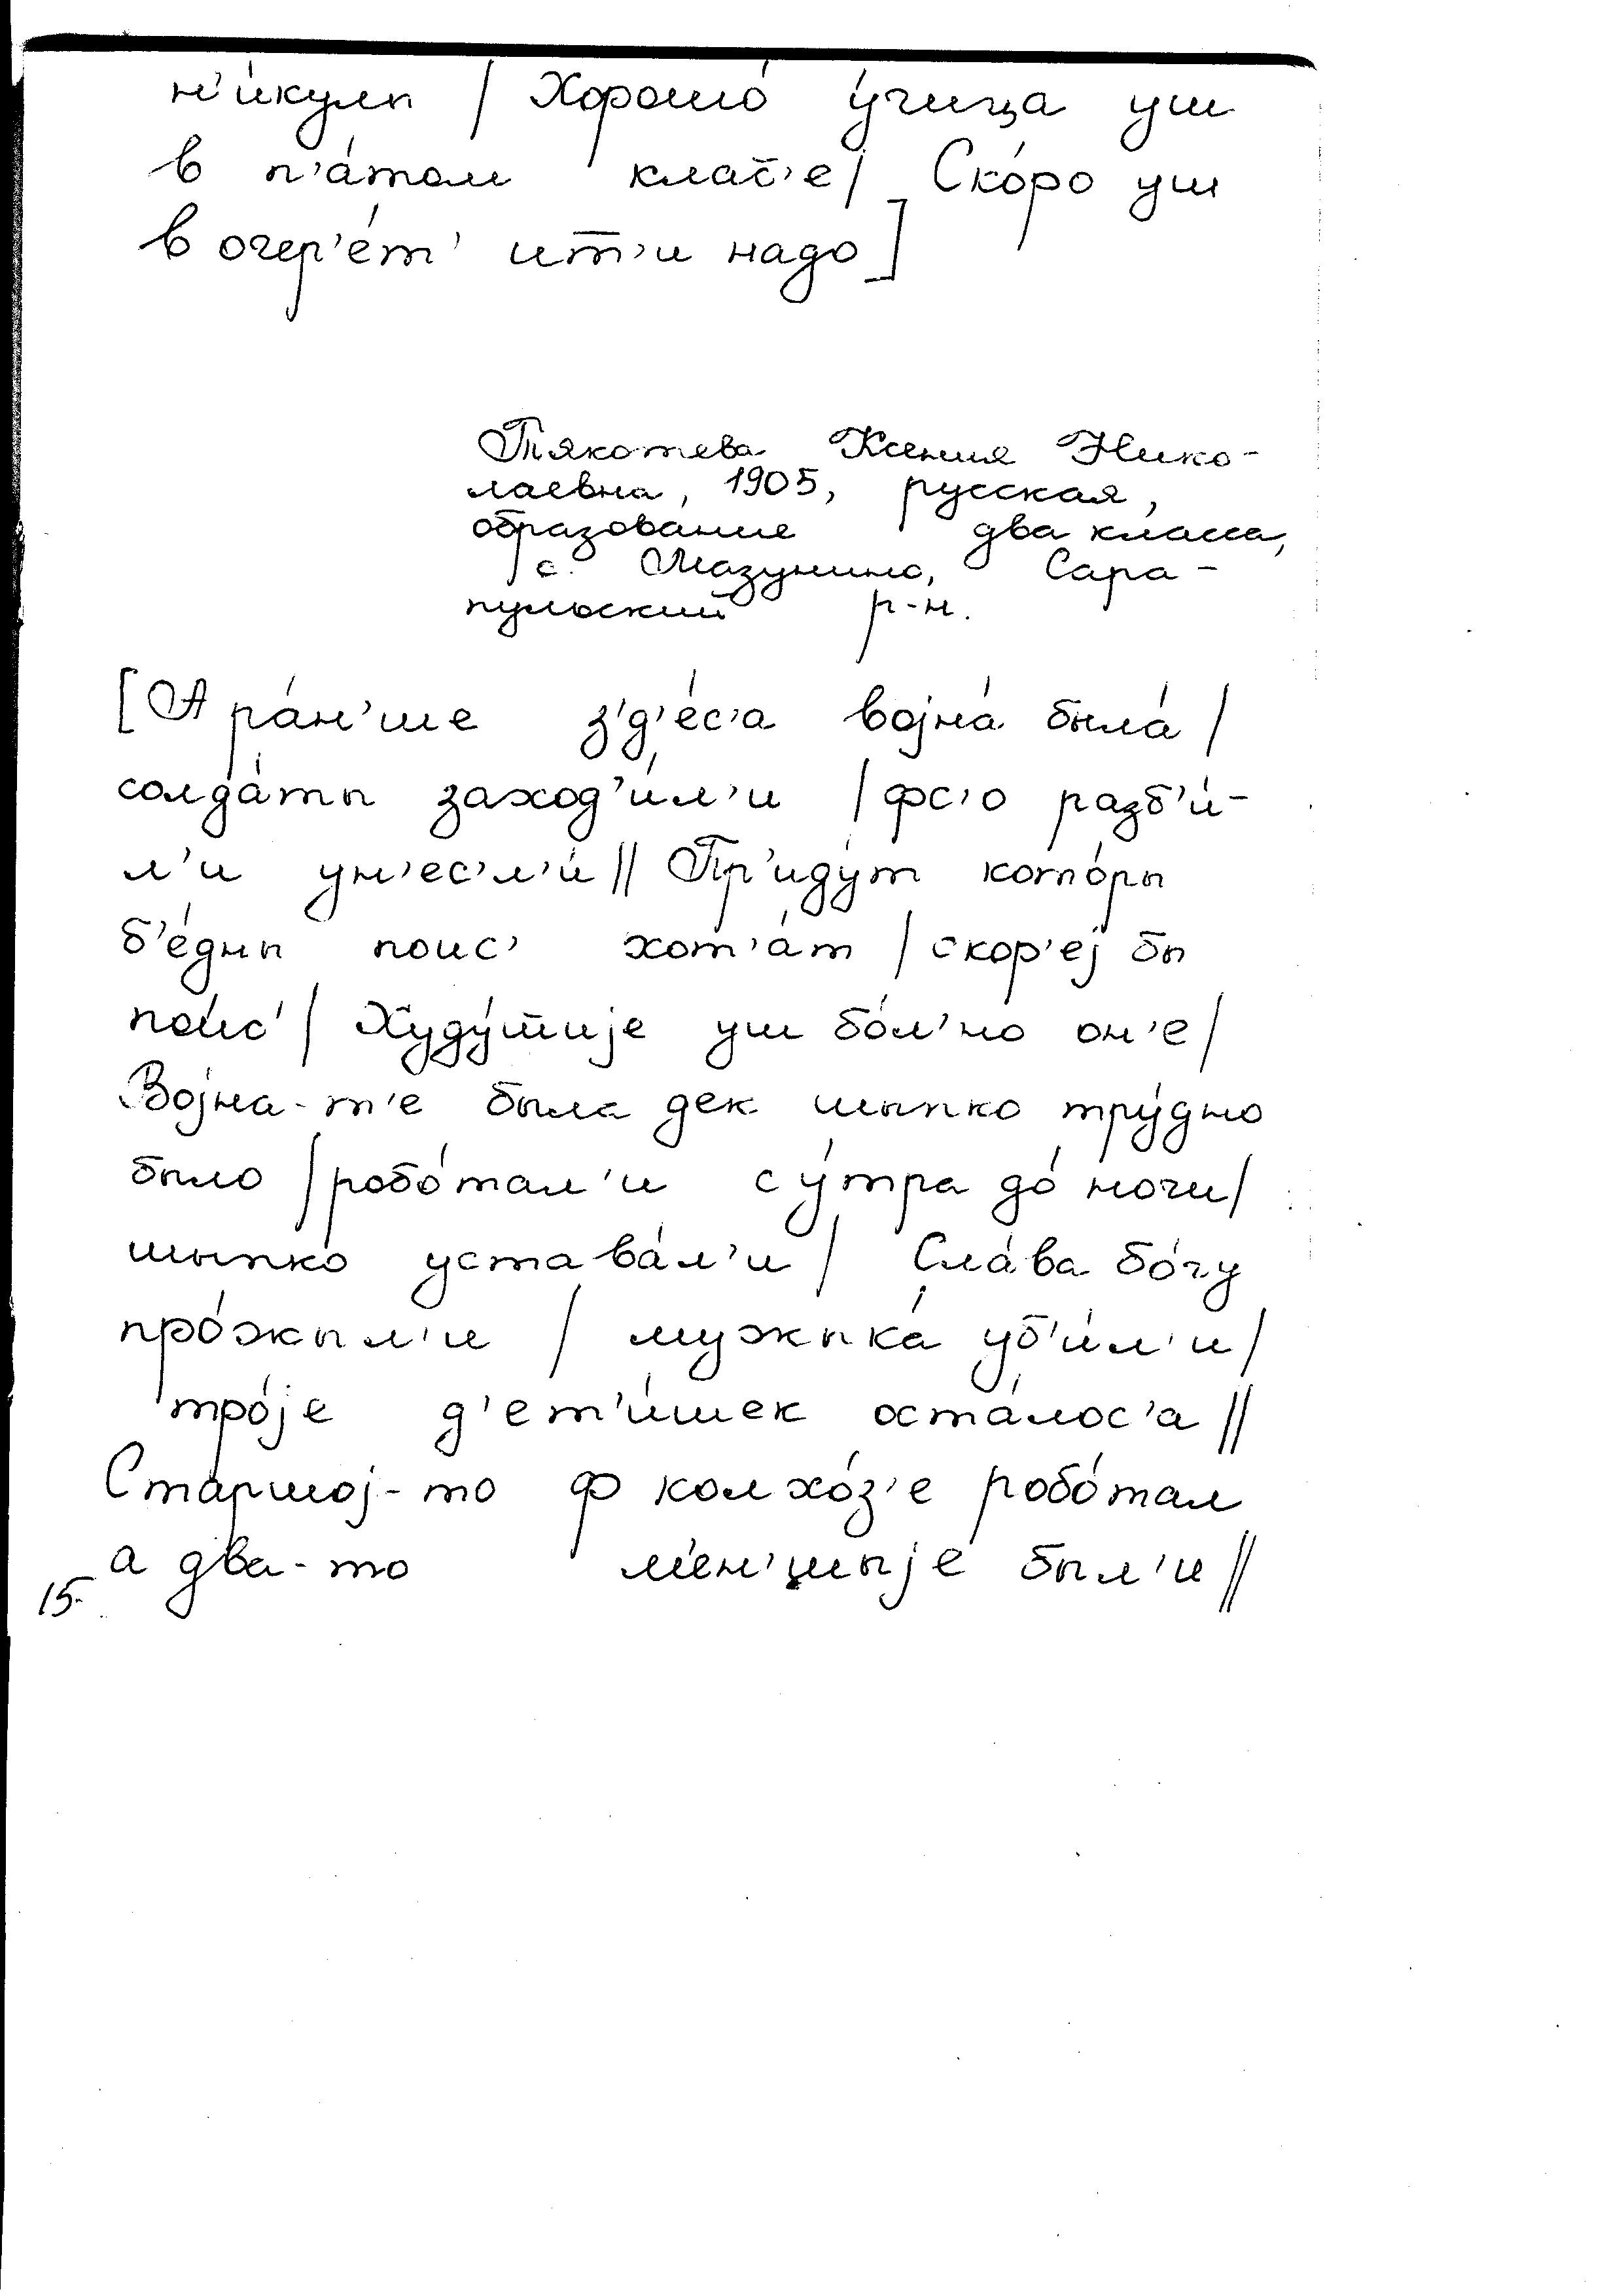 н'и́кулы / Хорошо́ у́чица уш
в п'а́том клас̄'е / Ско́ро уш
в очер'е́т' ит̄'и надо]
Тякотева Ксения Нико-
лаевна, 1905, русская,
образование два класса,
с. Мазунино, Сара-
пульский р-н.
[А ра́н'ше з'д'е́с'а војна́ была́ /
солда́ты заход'и́л'и / фс'о разб'и́-
л'и ун'ес'л'и́ // Пр'иду́т кото́ры
б'е́дны поис' хот'а́т / скор'еј бы
по́ис' / Худу́шије уш бо́л'но он'е /
Војна-т'е была дек шыпко тру́дно
было / робо́тал'и су́тра до́ ночи /
шыпко устава́л'и / Сла́ва бо́гу
про́жыл'и / мужыка́ уб'и́л'и /
тро́је д'ет'и́шек оста́лос'а //
Старшој-то ф колхо́з'е робо́тал
а два-то м'е́н'шыје был'и //
15.